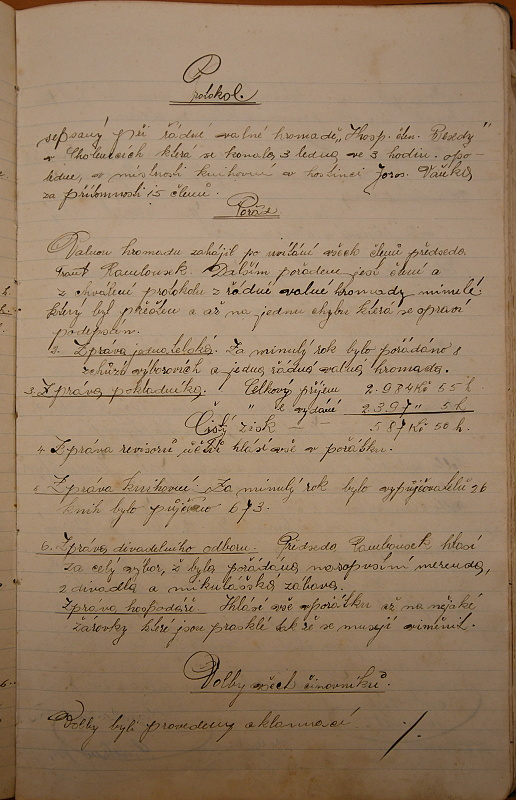 Protokol.
sepsaný při řádné valné hromadě „Hosp. čten. Besedy"
v Cholenicích která se konala 3 ledna ve 3 hodin. odpo-
ledne, v místnosti knihovní v hostinci Jaros. Vaňka
za přítomnosti 15 členů.
Pořad
Valnou hromadu zahájil po uvítání všech členů předseda
Rambousek. Dalším pořadem jest čtení a
z chválení protokolu z řádné valné hromady minulé
který byl přečten a až na jednu chybu která se opraví
podepsán.
2. Zpráva jednatelská. Za minulý rok bylo pořádáno 8
schůzí výborových a jedna řádná valná hromada.
3. Zpráva pokladníka. Celkový příjem 2.984 Kč 55 h
" vydání 2397 " 5 h.
Čistý zisk — — 587 Kč 50 h.
4. Zpráva revisorů účtů hlásí vše v pořádku.
5. Zpráva knihovní - Za minulý rok bylo vypůjčovatelů 26
knih bylo půjčeno 673.
6. Zpráva divadelního odboru. Předseda Rambousek hlásí
za celý výbor, ž byla pořádána masopusní merenda,
2 divadla a mikulášská zábava.
Zpráva hospodáře. Hlásí vše v pořádku až na nějaké
žárovky které jsou prasklé tak že se musejí viměnit.
Volby všech činovníků.
Volby byli provedeny aklamací ./.